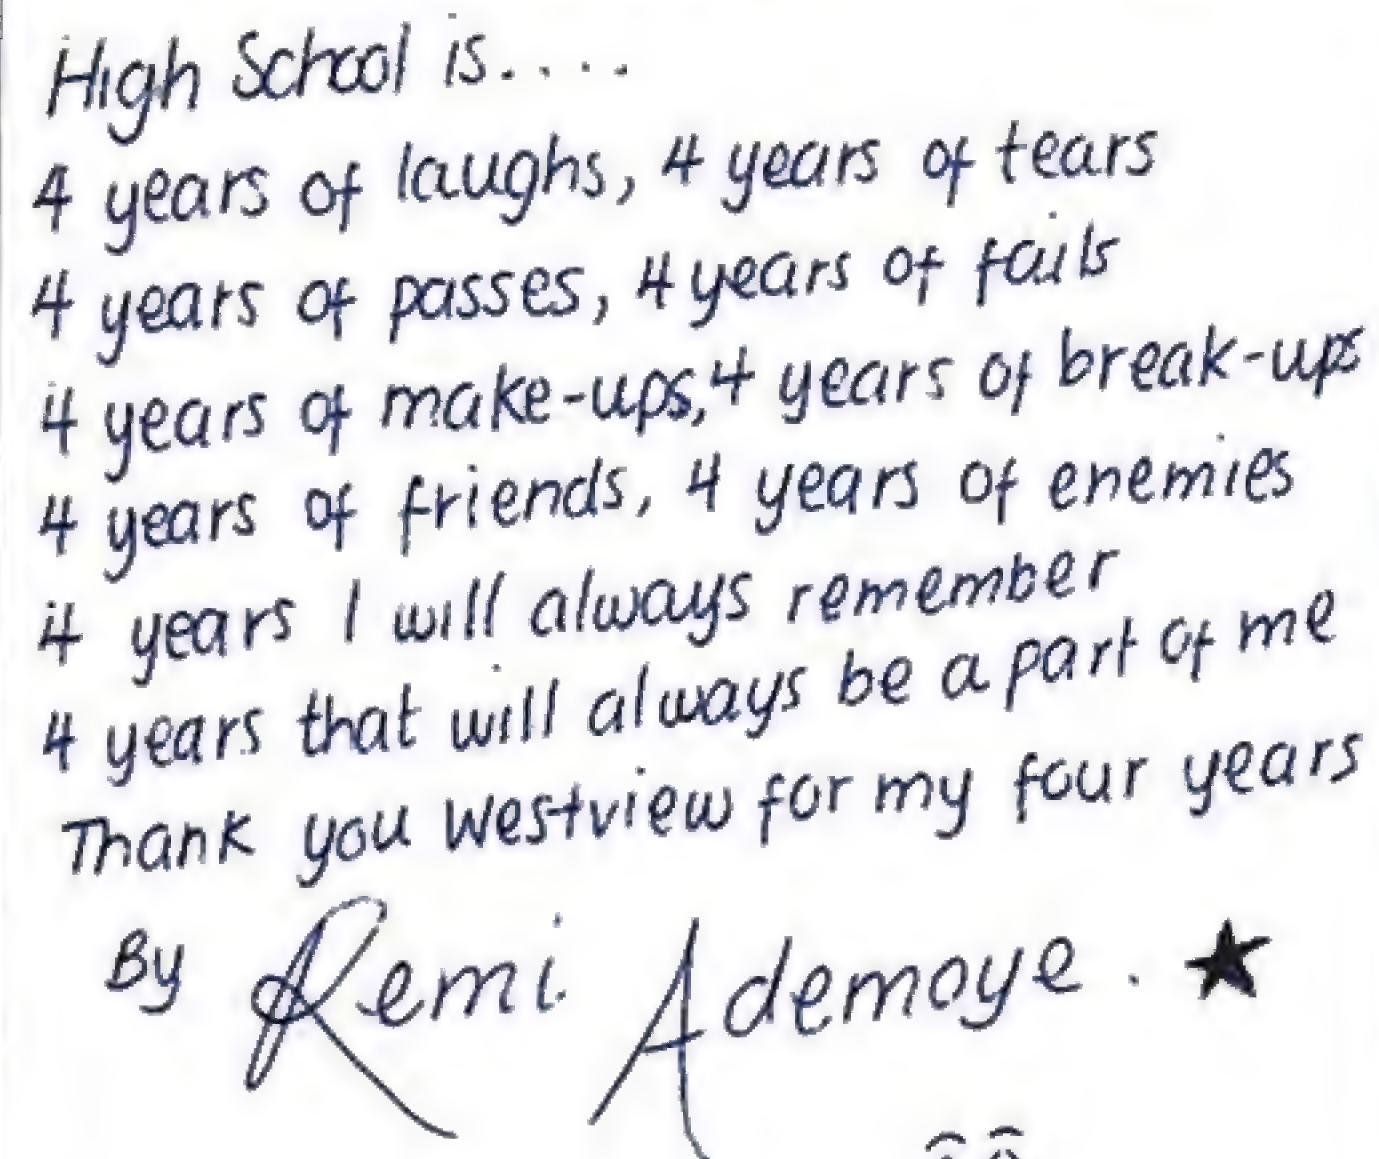 High School is....
4 years of laughs, 4 years of tears
4 years of passes, 4 years of fails
4 years of make-ups, 4 years of break-ups
4 years of friends, 4 years of enemies
4 years I will always remember
4 years that will always be a part of me
Thank you Westview for my four years
By Remi Ademoye. ★